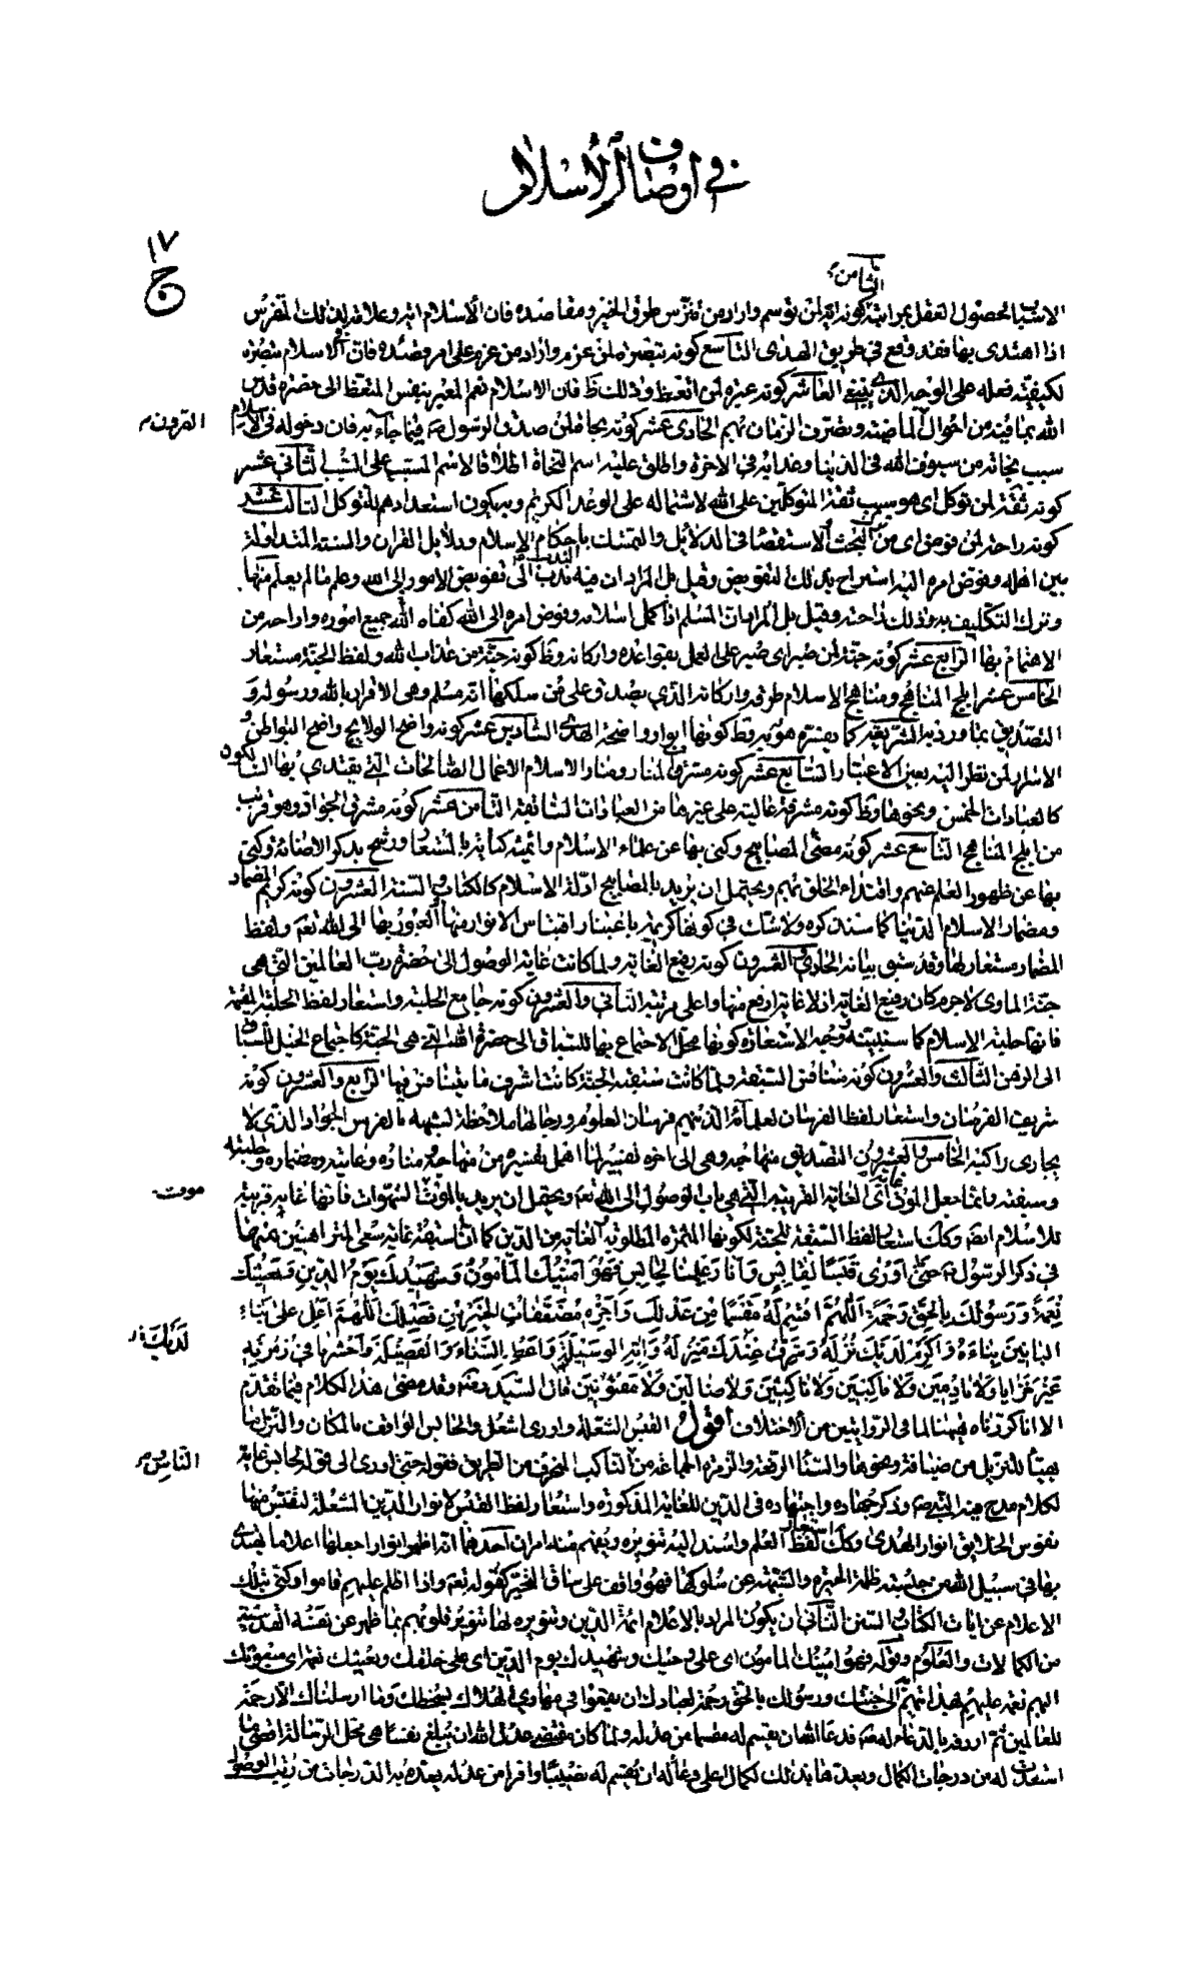 في اوصاف الاسلام
١٧
ج
الثامن
الاشياء لحصول العقل بمراتبه كونه اية لمن توسم واراد من تفرس طرق الخير ومقاصده فان الاسلام اية وعلامة لذلك المتفرس
اذا اهتدى بها فقد وقع في طريق الهدى التاسع كونه تبصرة لمن عزم واراد من عزم على امر وقصده فان الاسلام تبصرة
لكيفية فعله على الوجه الذي ينبغي العاشر كونه عبرة لمن اتعظ وذلك ظ فان الاسلام نعم المعبر بنفس المتعظ الى حضرة قدس
الله بما فيه من احوال الماضية وتصرف الزمان بهم الحادي عشر كونه نجاة لمن صدق الرسول ص فيما جاء به فان دخوله في الاسلام
القرون
سبب نجاته من سيوف الله في الدنيا وعذابه في الاخرة واطلق عليه اسم النجاة اطلاقا لاسم المسبب على السبب الثاني عشر
كونه ثقة لمن توكل اى هو سبب ثقة المتوكلين على الله لاشتماله على الوعد الكريم وبه يكون استعدادهم للتوكل الثالث عشر
كونه راحة لمن فوض اى من البحث والاستقصاء في الدلائل والتمسك باحكام الاسلام ودلائل القران والسنة المتداولة
بين اهله وفوض امره اليه استراح بذلك التفويض وقيل بل المراد ان فيه ندب الى تفويض الامور الى الله وعلم ما لم يعلم منها
وترك التكليف به وذلك راحة وقيل بل المراد ان المسلم اذا كمل اسلامه وفوض امره الى الله كفاه الله جميع اموره واراحه من
الاهتمام بها الرابع عشر كونه جنة لمن صبر اى صبر على العمل بقواعده واركانه وظ كونه جنة من عذاب الله ولفظ الجنة مستعار
الخامس عشر ابلج المناهج ومناهج الاسلام طرقه واركانه الذي يصدق على من سلكها انه مسلم وهى الاقرار بالله ورسوله و
التصديق بما ورد به الشريعة كما يفسره هو به وظ كونها انوار واضحة الهدى السادس عشر كونه واضح الولايج واضح البواطن و
الاسرار لمن نظر اليه بعين الاعتبار السابع عشر كونه مشرف المنار ومنار الاسلام الاعمال الصالحات التي يقتدى بها السالكون
كالعبادات الخمس ونحوها وظ كونه مشرفة عالية على غيرها من العبادات السابقة الثامن عشر كونه مشرق الجواد وهو قريب
من ابلج المناهج التاسع عشر كونه مضئ المصابيح وكنى بها عن علماء الاسلام وائمته كناية بالمستعار ورشح بذكر الاضائة وكنى
بها عن ظهور العلم عنهم واقتداء الخلق بهم ويحتمل ان يريد بالمصابيح ادلة الاسلام كالكتاب والسنة العشرون كونه كريم المضمار
ومضمار الاسلام الدنيا كما سنذكره ولا شك في كونها كريمة باعتبار اقتباس الانوار منها والعبور بها الى الله تعه ولفظ
المضمار مستعار لها وقد سبق بيانه الحادى والعشرون كونه رفيع الغاية ولما كانت غاية الوصول الى حضرة رب العالمين التي هى
جنة الماوى لا جرم كان رفيع الغاية اذ لا غاية ارفع منها واعلى مرتبة الثانى والعشرون كونه جامع الحلبة واستعار لفظ الحلبة للقيمة
فانها حلبة الاسلام كما سنبينه ووجه الاستعارة كونها محل الاجتماع بها للسباق الى حضرة الله التى هى الجنة كاجتماع الخيل للسباق
الى الرهن الثالث والعشرون كونه متنافس السبقة ولما كانت سبقته الجنة كانت اشرف ما يتنافس فيها الرابع والعشرون كونه
شريف الفرسان واستعار لفظ الفرسان لعلمائه الذينهم فرسان العلوم ورجالها ملاحظة لشبههه بالفرس الجواد الذى لا
يجارى راكبه الخامس والعشرون التصديق منهاجه وهى الى اخره تفسير لما اهمل تفسيره من منهاجه ومناره وغايته ومضماره وحلبته
وسبقته وانما جعل الموت غايته اى الغاية القريبة التى هي باب الوصول الى الله تعه ويحتمل ان يريد بالموت الشهوات فانها غاية قريبة
موت
للاسلام ايضا وكك استعار لفظ السبقة للجنة لكونها الثمرة المطلوبة والغاية من الدين كما ان السبقة غاية سعى المتراهنين منها
في ذكر الرسول ص حتى اورى قبسا لقابس وانار علما لحابس فهو امينك المامون وشهيدك يوم الدين وبعيثك
نعمة ورسولك بالحق رحمة اللهم اقسم له مقسما من عدلك واجزه مضعفات الخير من فضلك اللهم اعل على بناء
البانين بناءه واكرم لديك نزله وشرف عندك منزله واته الوسيلة واعطه السناء والفضيلة واحشرنا في زمرته
لديك
غير خزايا ولا نادمين ولا ناكبين ولا ناكثين ولا ضالين ولا مفتونين قال السيد رضه وقد مضى هذا الكلام فيما تقدم
الا انا كررناه ههنا لما في الروايتين من الاختلاف اقول القبس الشعلة واورى اشعل والحابس الواقف بالمكان والنزل ما
يهيأ للنزيل من ضيافة ونحوها والسناء الرفعة والزمرة الجماعة من الناس والناكب المنحرف من الطريق فقوله حتى اورى الى قوله لحابس غاية
الناس
لكلام مدح فيه النبي ص وذكر جهاده واجتهاده في الدين للغاية المذكورة واستعار لفظ القبس لانوار الدين المشعلة لتقتبس منها
نفوس الخلايق انوار الهدى وكك استعار لفظ العلم واسند اليه تنويره ويفهم منه امران احدهما انه اظهر انوارا جعلها اعلاما يهتدى
بها في سبيل الله من حبسته ظلمة الحيرة والشبهة عن سلوكها فهو واقف على ساق التحير كقوله تعه واذا اظلم عليهم قاموا وكنى بتلك
الاعلام عن ايات الكتاب والسنن الثاني ان يكون المراد بالاعلام ائمة الدين وتنويره لها تنوير قلوبهم بما ظهر عن نفسه القدسية
من الكمالات والعلوم وقوله فهو امينك المامون اى على وحيك وشهيدك يوم الدين اى على خلقك وبعيثك نعمة اى مبعوثك
اليهم نعمة عليهم بهدايتهم الى جنتك ورسولك بالحق رحمة لعبادك ان يقعوا في مهاوي الهلاك بسخطك وما ارسلناك الا رحمة
للعالمين ثم اردفه بالدعاء له ص فدعا الله ان يقسم له مقسما من عدله ولما كان مقتضى عدل الله ان يبلغ نفسا هى محل الرسالة اقصى ما
استعدت له من درجات الكمال ويعدها بذلك لكمال اعلى دعا له ان يقسم له نصيبا وافرا من عدله يعده به الدرجات من رتب الوصول